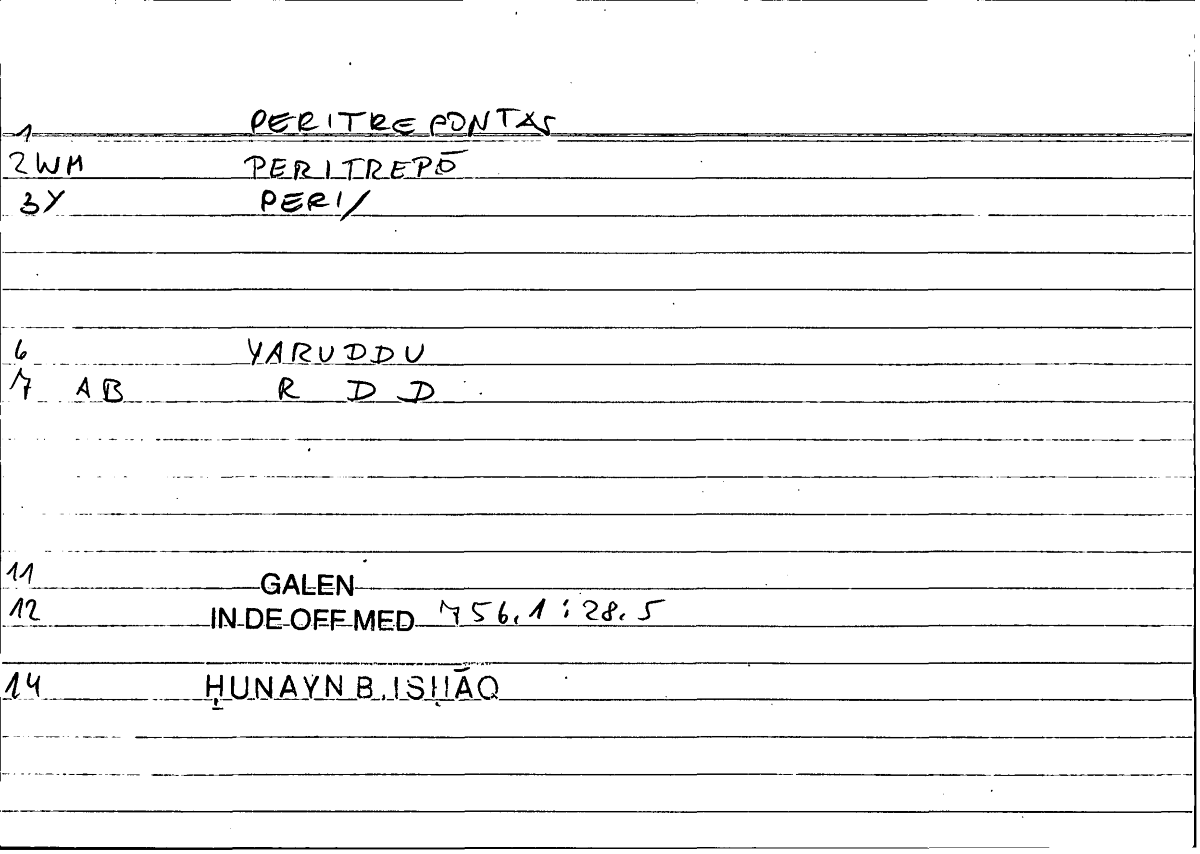 1 PERITREPONTAS
2WM PERITREPŌ
3Y PERI/
6 YARUDDU
7 AB R D D
11 GALEN
12 IN DE OFF MED 756.1 : 28.5
14 ḤUNAYN B. ISḤĀQ